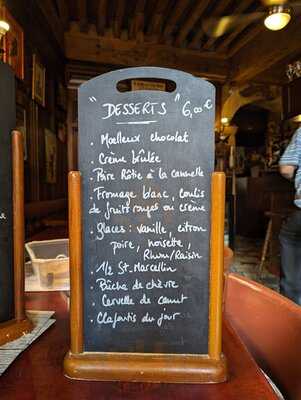 " DESSERTS " 6,00 €
. Moelleux chocolat
. Crème brûlée
. Poire Rôtie à la cannelle
. Fromage blanc, coulis
de fruits rouges ou crème
. glaces : vanille, citron
poire, noisette,
Rhum/Raisin
. 1/2 St. Marcellin
. Bûche de chèvre
. Cervelle de canut
. Clafoutis du jour